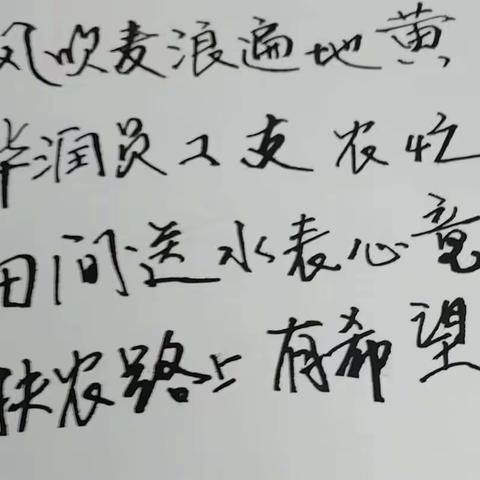 风吹麦浪遍地黄
华润员工支农忙
田间送水表心意
扶农路上有希望